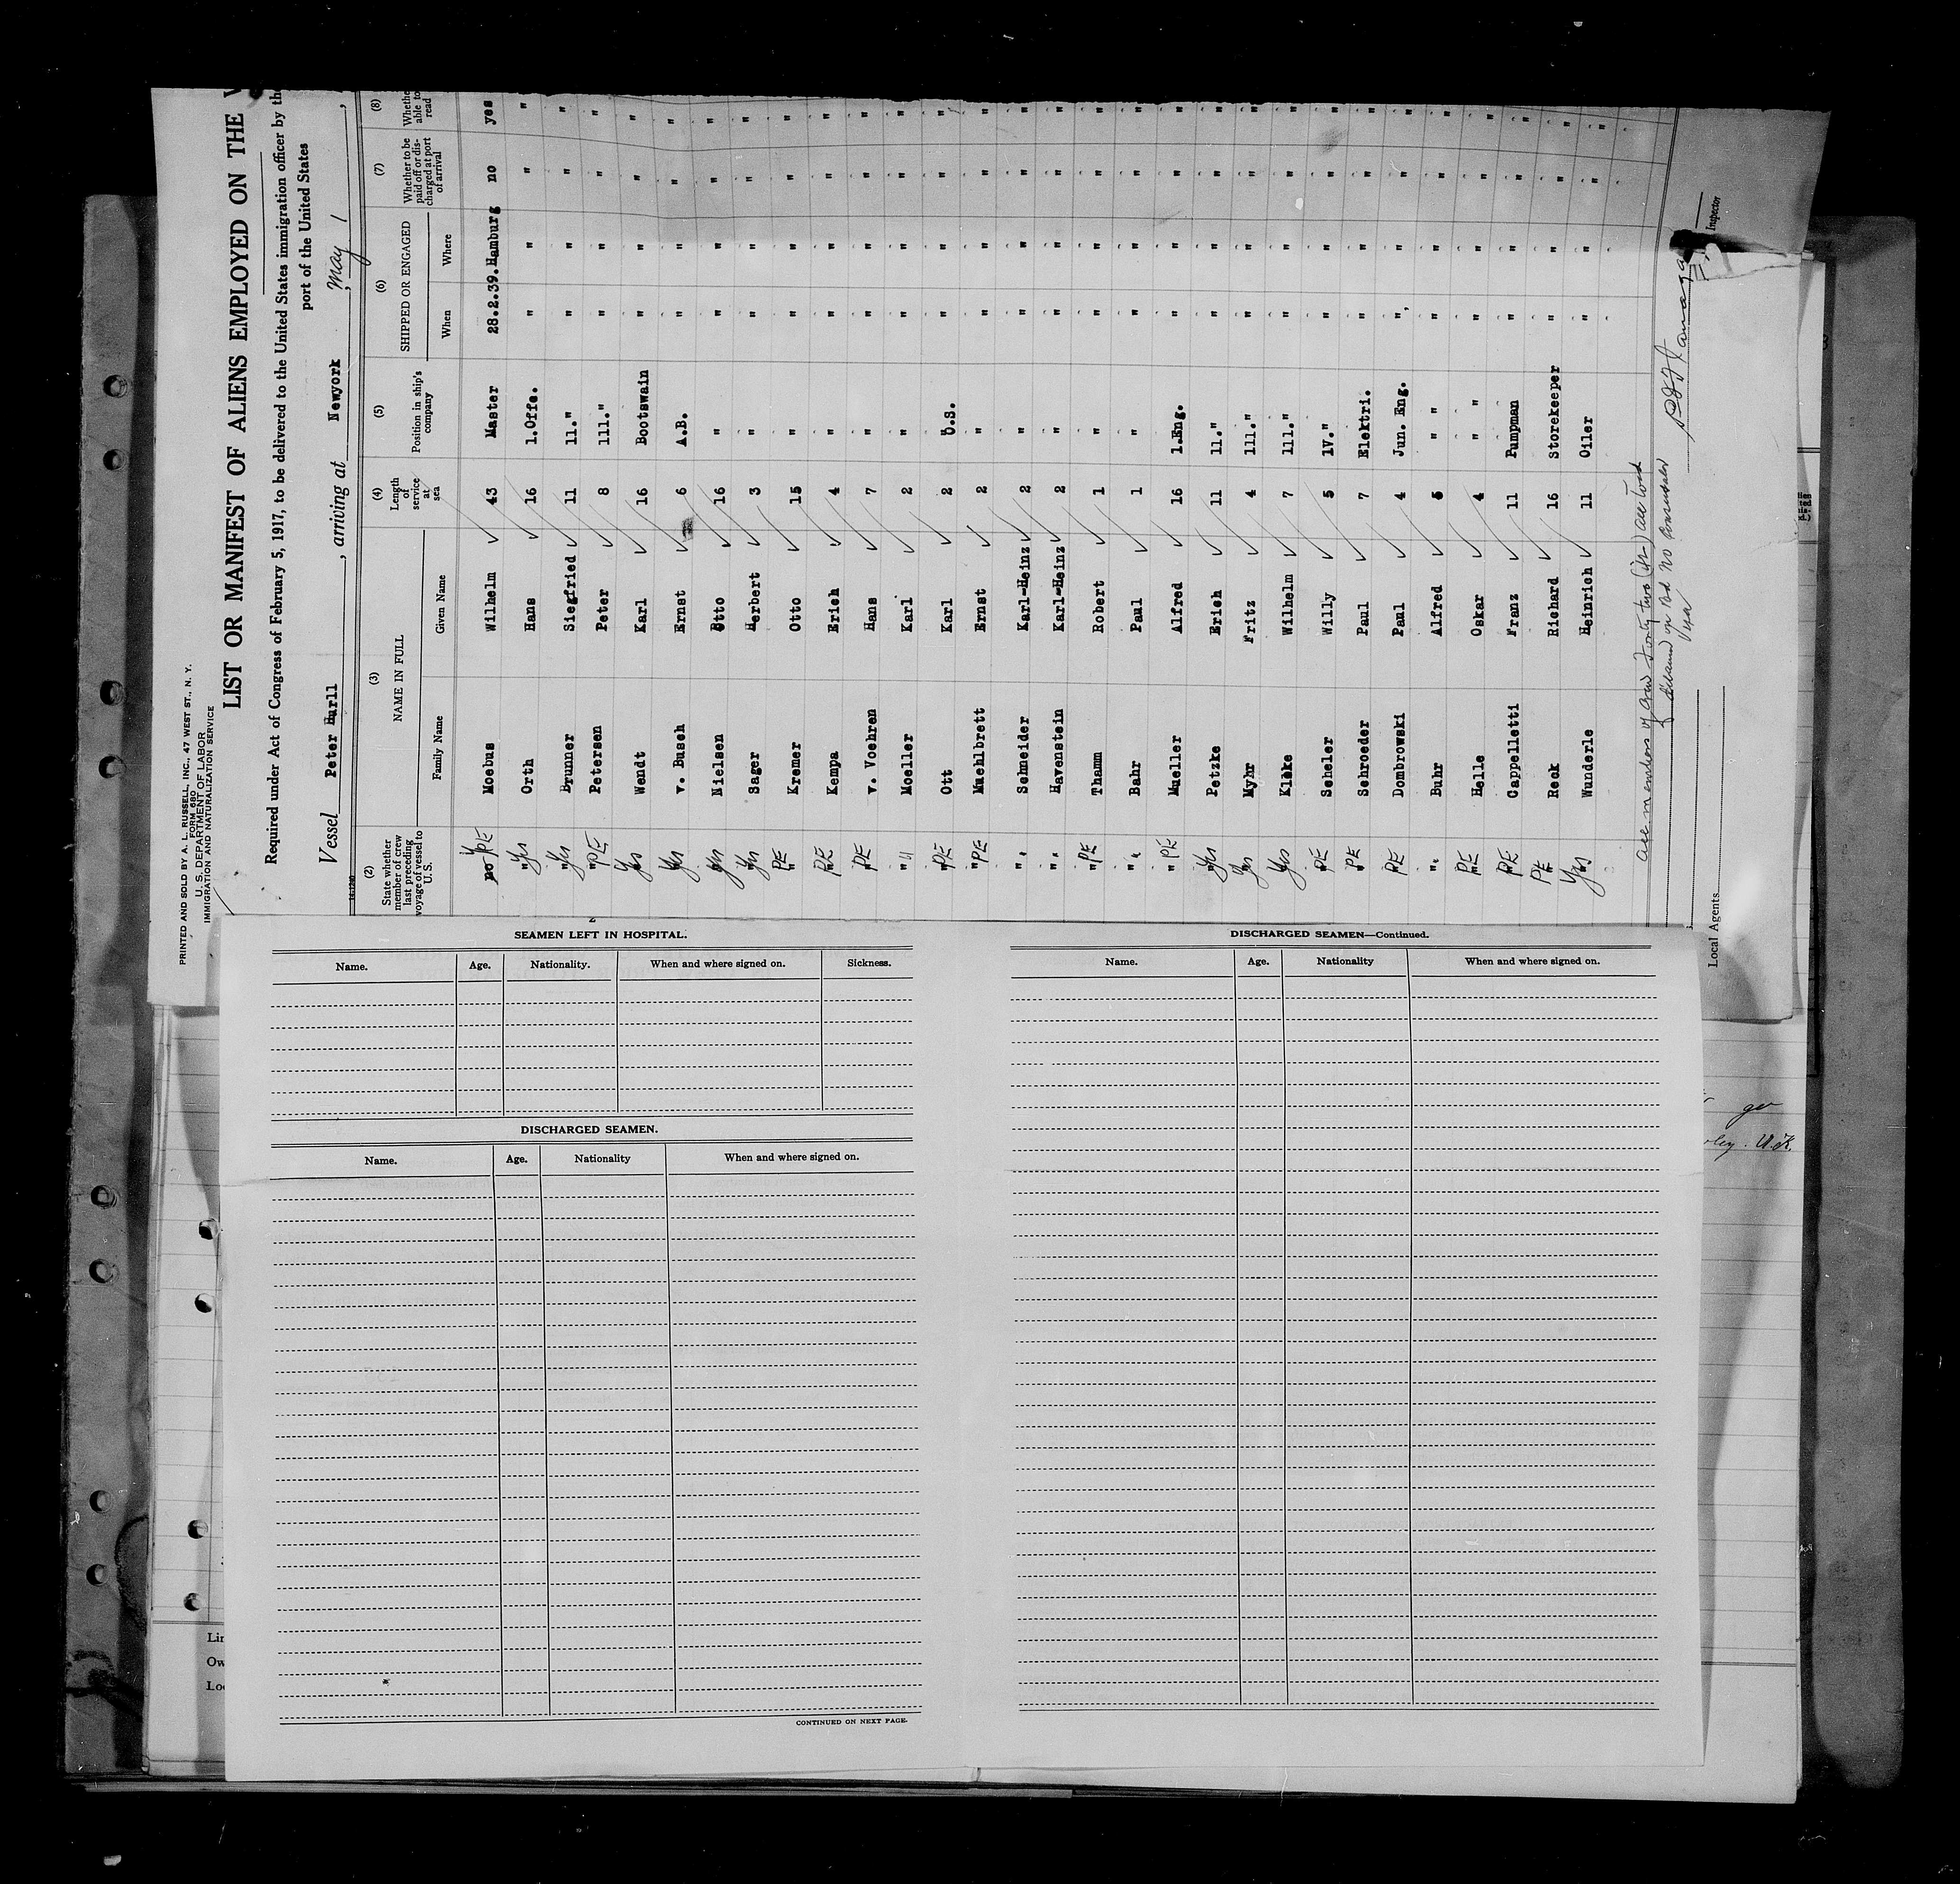 PRINTED AND SOLD BY A. L. RUSSELL, INC., 47 WEST ST., N. Y.
FORM 680
U. S. DEPARTMENT OF LABOR
IMMIGRATION AND NATURALIZATION SERVICE
LIST OR MANIFEST OF ALIENS EMPLOYED ON THE
Required under Act of Congress of February 5, 1917, to be delivered to the United States immigration officer by the
port of the United States
Vessel Peter Hurll, arriving at Newyork, May 1,
(2) (3) (4) (5) (6) (7) (8)
State whether member of crew last preceding voyage of vessel to U. S. NAME IN FULL Length of service at sea Position in ship's company SHIPPED OR ENGAGED Whether to be paid off or discharged at port of arrival Whether able to read
Family Name Given Name When Where
no PE Moebus Wilhelm 43 Master 28.2.39. Hamburg no yes
" Yes Orth Hans 16 1.Offc. " " " "
" Yes Brunner Siegfried 11 11." " " " "
" PE Petersen Peter 8 111." " " " "
" Yes Wendt Karl 16 Bootswain " " " "
" Yes v. Busch Ernst 6 A.B. " " " "
" Yes Nielsen Otto 16 " " " " "
" Yes Sager Herbert 3 " " " " "
" PE Kremer Otto 15 " " " " "
" PE Kempa Erich 4 " " " " "
" PE v. Voehren Hans 7 " " " " "
" " Moeller Karl 2 " " " " "
" PE Ott Karl 2 O.S. " " " "
" PE Muehlbrett Ernst 2 " " " " "
" " Schneider Karl-Heinz 2 " " " " "
" " Havenstein Karl-Heinz 2 " " " " "
" PE Thamm Robert 1 " " " " "
" " Bahr Paul 1 " " " " "
" PE Mueller Alfred 16 1.Eng. " " " "
" Yes Petzke Erich 11 11." " " " "
" Yes Myhr Fritz 4 111." " " " "
" Yes Kleke Wilhelm 7 111." " " " "
" PE Scheler Willy 5 1V." " " " "
" PE Schroeder Paul 7 Elektri. " " " "
" PE Dombrowski Paul 4 Jun. Eng. " " " "
" " Buhr Alfred 5 " " " " " "
" PE Helle Oskar 4 " " " " " "
" PE Cappelletti Franz 11 Pumpman " " " "
" PE Reck Richard 16 Storekeeper " " " "
" Yes Wunderle Heinrich 11 Oiler " " " "
All members of crew Forty two (42) all told
No Consular
Visa
Inspector
Local Agents
SEAMEN LEFT IN HOSPITAL.
Name. Age. Nationality. When and where signed on. Sickness.
DISCHARGED SEAMEN.
Name. Age. Nationality When and where signed on.
CONTINUED ON NEXT PAGE.
DISCHARGED SEAMEN—Continued.
Name. Age. Nationality When and where signed on.
Lin
Ow
Loc